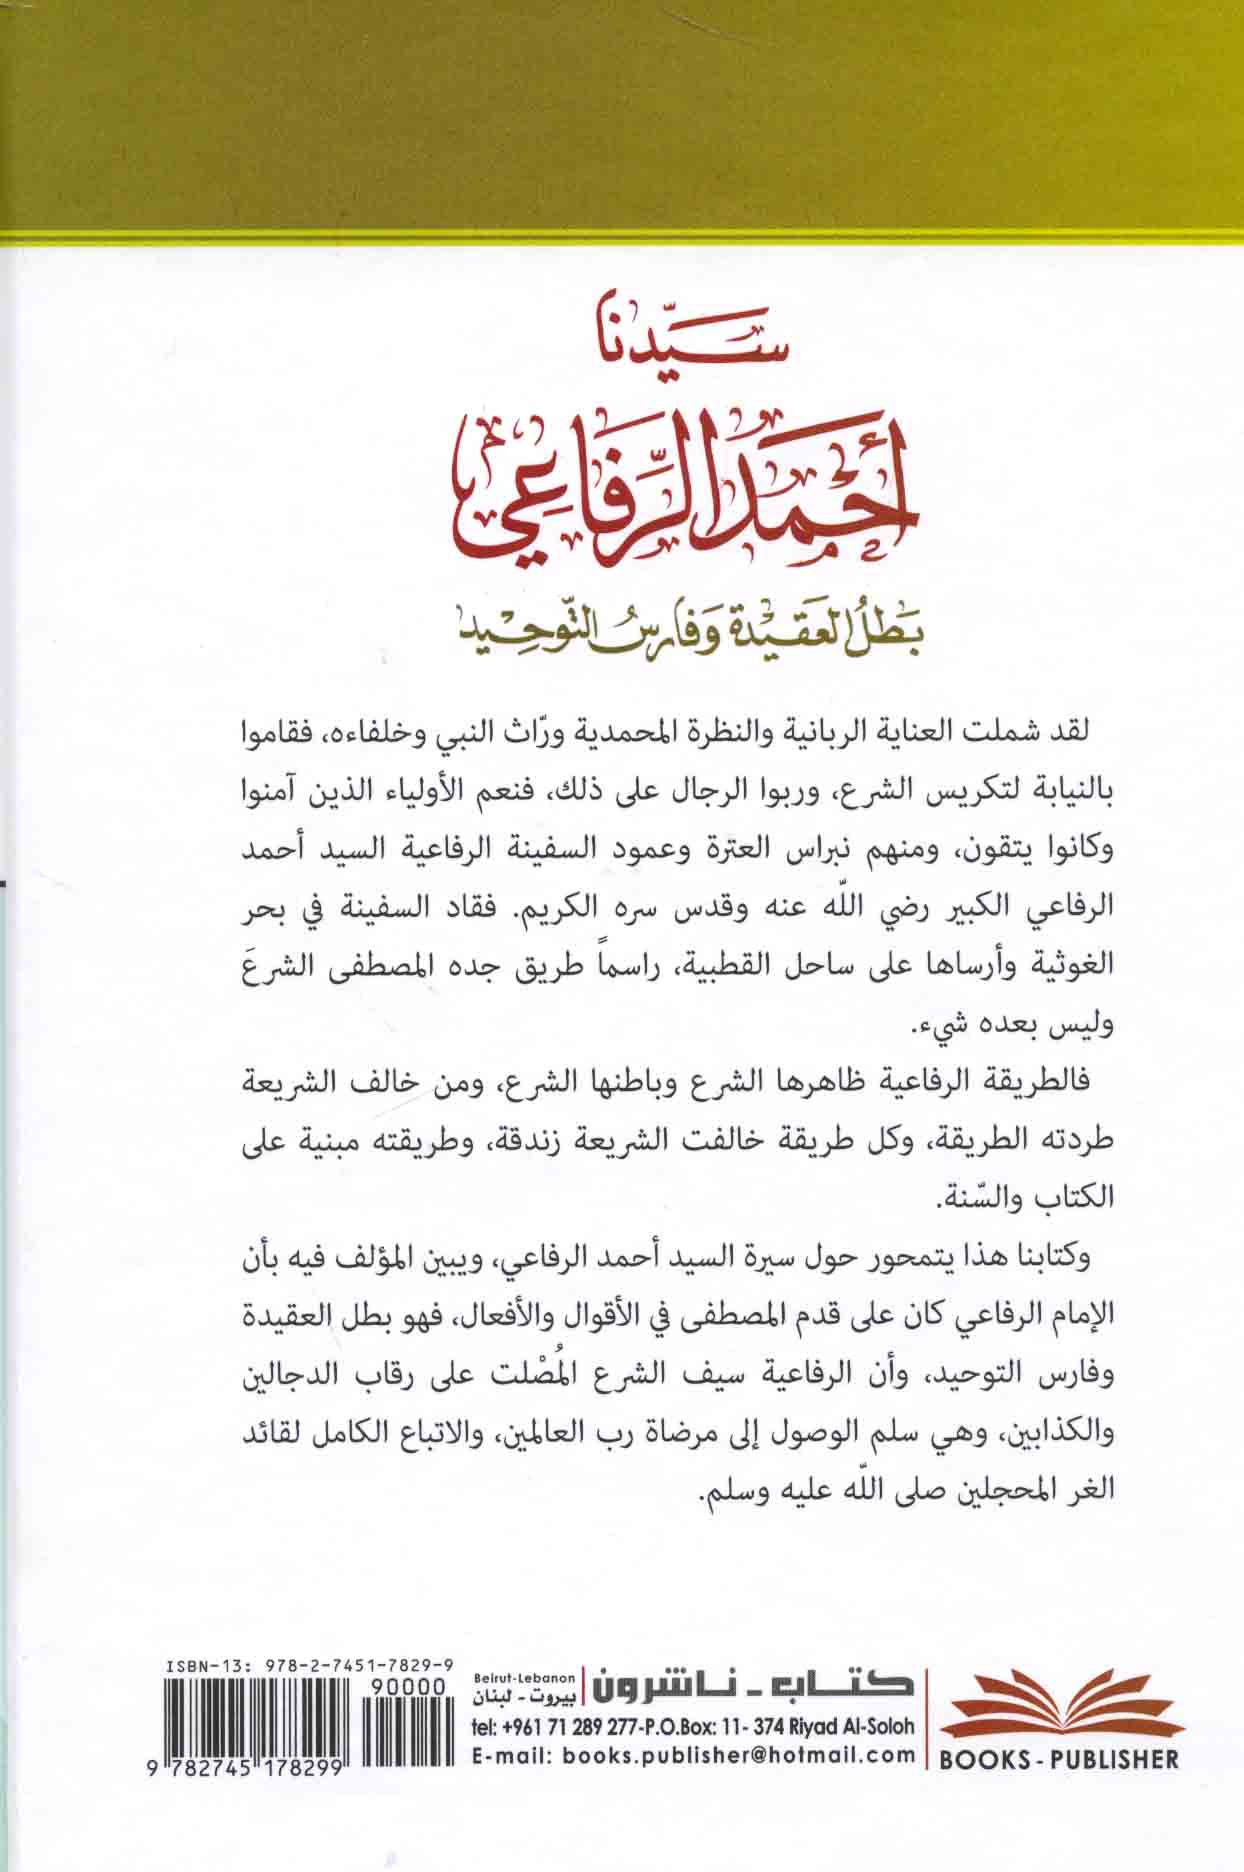 سيّدنا
أحمد الرّفاعي
بطل العقيدة وفارس التّوحيد
لقد شملت العناية الربانية والنظرة المحمدية ورّاث النبي وخلفاءه، فقاموا
بالنيابة لتكريس الشرع، وربوا الرجال على ذلك، فنعم الأولياء الذين آمنوا
وكانوا يتقون، ومنهم نبراس العترة وعمود السفينة الرفاعية السيد أحمد
الرفاعي الكبير رضي اللّه عنه وقدس سره الكريم. فقاد السفينة في بحر
الغوثية وأرساها على ساحل القطبية، راسماً طريق جده المصطفى الشرعَ
وليس بعده شيء.
فالطريقة الرفاعية ظاهرها الشرع وباطنها الشرع، ومن خالف الشريعة
طردته الطريقة، وكل طريقة خالفت الشريعة زندقة، وطريقته مبنية على
الكتاب والسّنة.
وكتابنا هذا يتمحور حول سيرة السيد أحمد الرفاعي، ويبين المؤلف فيه بأن
الإمام الرفاعي كان على قدم المصطفى في الأقوال والأفعال، فهو بطل العقيدة
وفارس التوحيد، وأن الرفاعية سيف الشرع المُصْلت على رقاب الدجالين
والكذابين، وهي سلم الوصول إلى مرضاة رب العالمين، والاتباع الكامل لقائد
الغر المحجلين صلى اللّه عليه وسلم.
ISBN-13: 978-2-7451-7829-9
90000
9 782745 178299
كتاب - ناشرون
Beirut-Lebanon
بيروت - لبنان
tel: +961 71 289 277-P.O.Box: 11- 374 Riyad Al-Soloh
E-mail: books.publisher@hotmail.com
BOOKS - PUBLISHER